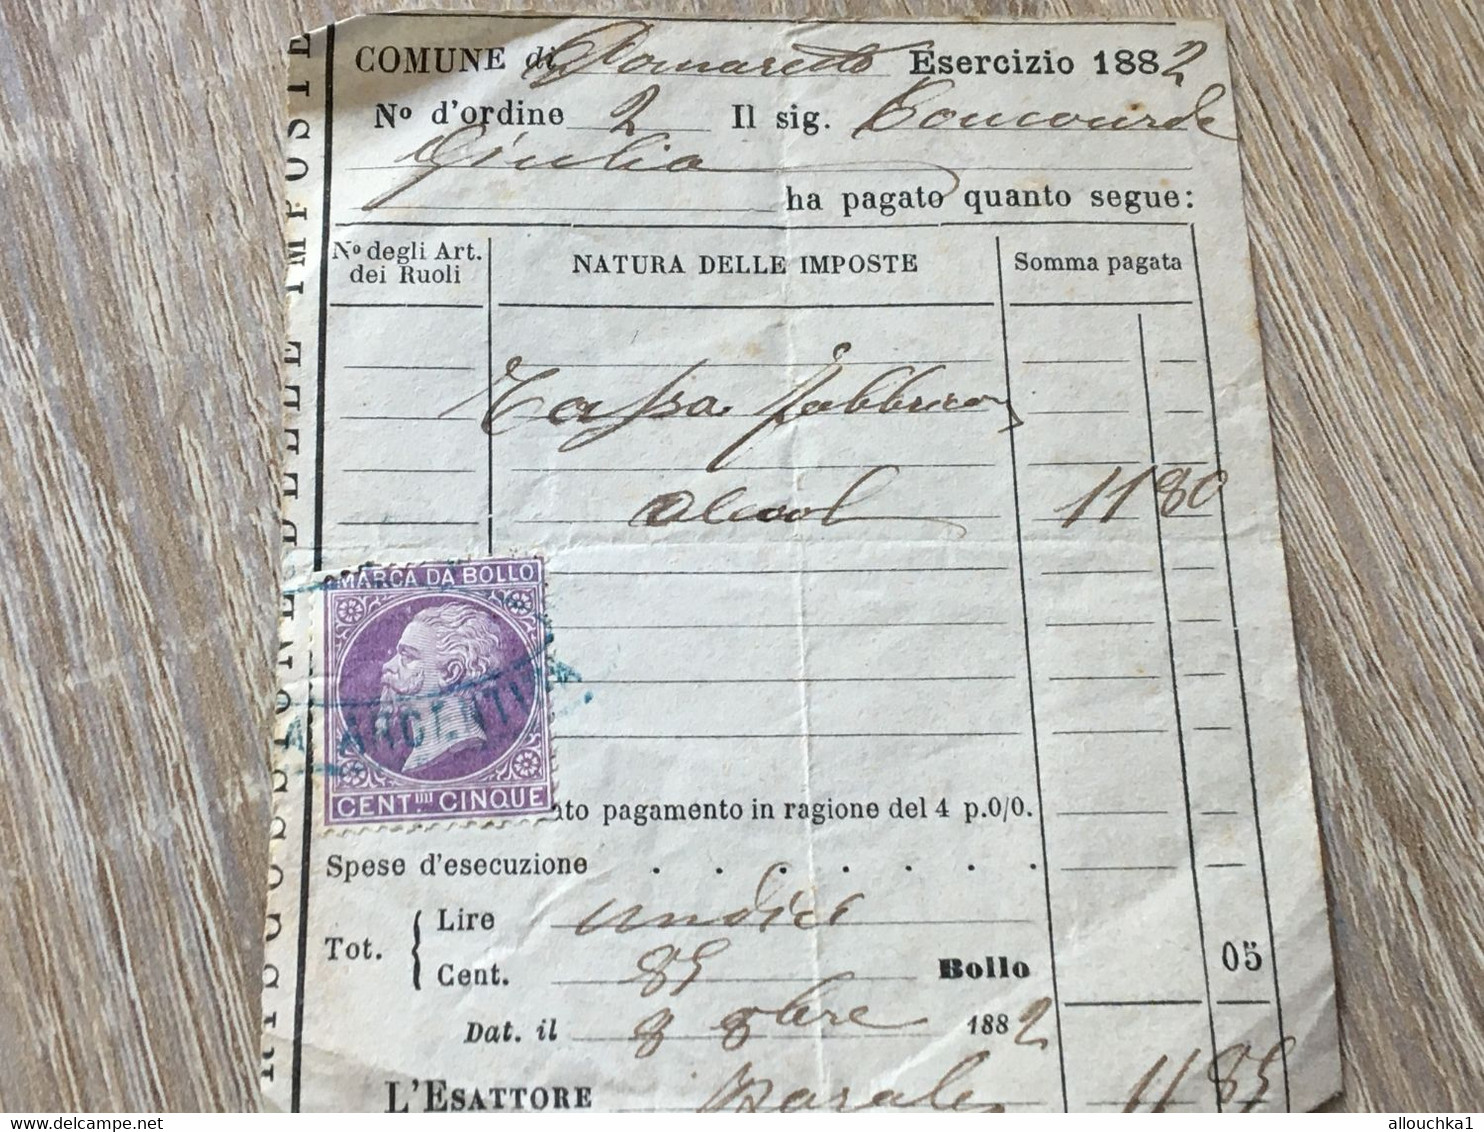 RISCOSSIONE DELLE IMPOSTE
COMUNE di Pomaretto Esercizio 1882
Nº d'ordine 2 Il sig. Concourde
Giulia
ha pagato quanto segue:
Nº degli Art. dei Ruoli NATURA DELLE IMPOSTE Somma pagata
Tassa fabbricaz
alcool 11 80
MARCA DA BOLLO
CENT.mi CINQUE
ato pagamento in ragione del 4 p.0/0.
Spese d'esecuzione . . . . . . .
Tot. Lire undici
Cent. 85 Bollo 05
Dat. il 8 8bre 1882
L'ESATTORE 11 85
allouchka1